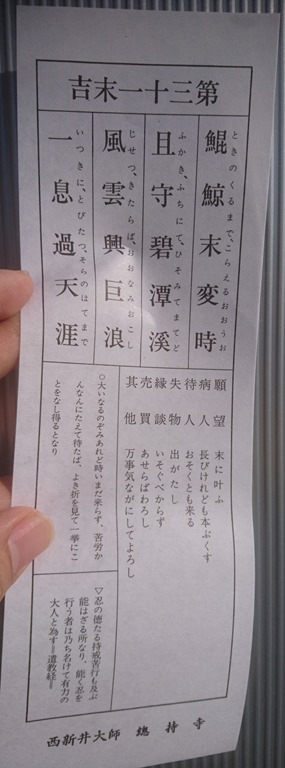 第三十一末吉
鯤鯨末変時
ときのくるまで、こらえるおおうお
且守碧潭溪
ふかき、ふちにて、ひそみてまてど
風雲興巨浪
じせつ、きたらば、おおなみおこし
一息過天涯
いつきに、とびたつ、そらのはてまで
願望 末に叶ふ
病人 長びけれども本ぶくす
待人 おそくとも来る
失物 出がたし
縁談 いそぐべからず
売買 あせらばわろし
其他 万事気ながにしてよろし
○大いなるのぞみあれど時いまだ来らず、苦労か
んなんにたえて待たば、よき折を見て一挙にこ
とをなし得るとなり
▽忍の徳たる持戒苦行も及ぶ
能はざる所なり、能く忍を
行う者は乃ち名けて有力の
大人と為す＝遺教経＝
西新井大師 總持寺